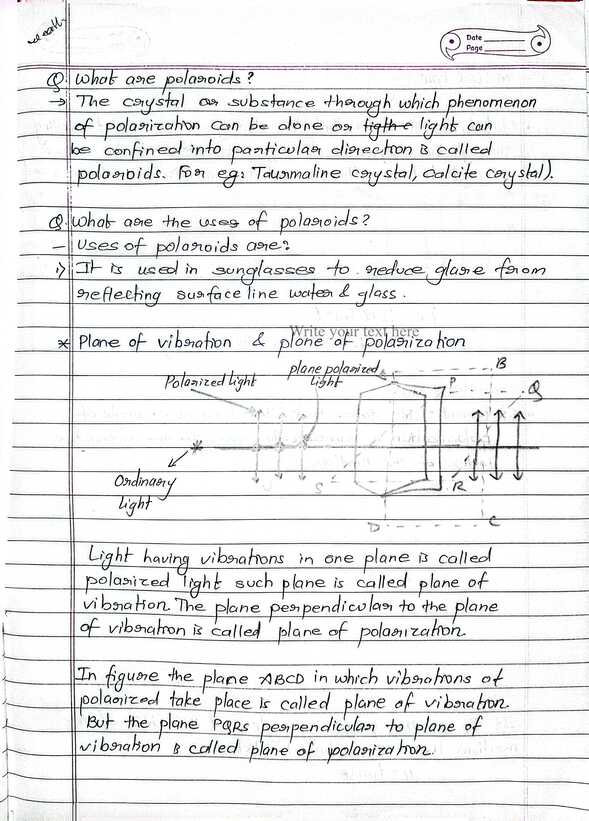 Date
Page
Q. What are polaroids?
→ The crystal or substance through which phenomenon
of polarization can be done or light can
be confined into particular direction is called
polaroids. For eg: Taurmaline crystal, Calcite crystal).
Q. What are the uses of polaroids?
- Uses of polaroids are:
i) It is used in sunglasses to reduce glare from
reflecting surface line water & glass.
Write your text here
* Plane of vibration & plane of polarization
Polarized light
plane polarized
light
B
P
Q
Ordinary
light
S
R
D
C
Light having vibrations in one plane is called
polarized light such plane is called plane of
vibration. The plane perpendicular to the plane
of vibration is called plane of polarization.
In figure the plane ABCD in which vibrations of
polarized take place is called plane of vibration.
But the plane PQRS perpendicular to plane of
vibration is called plane of polarization.